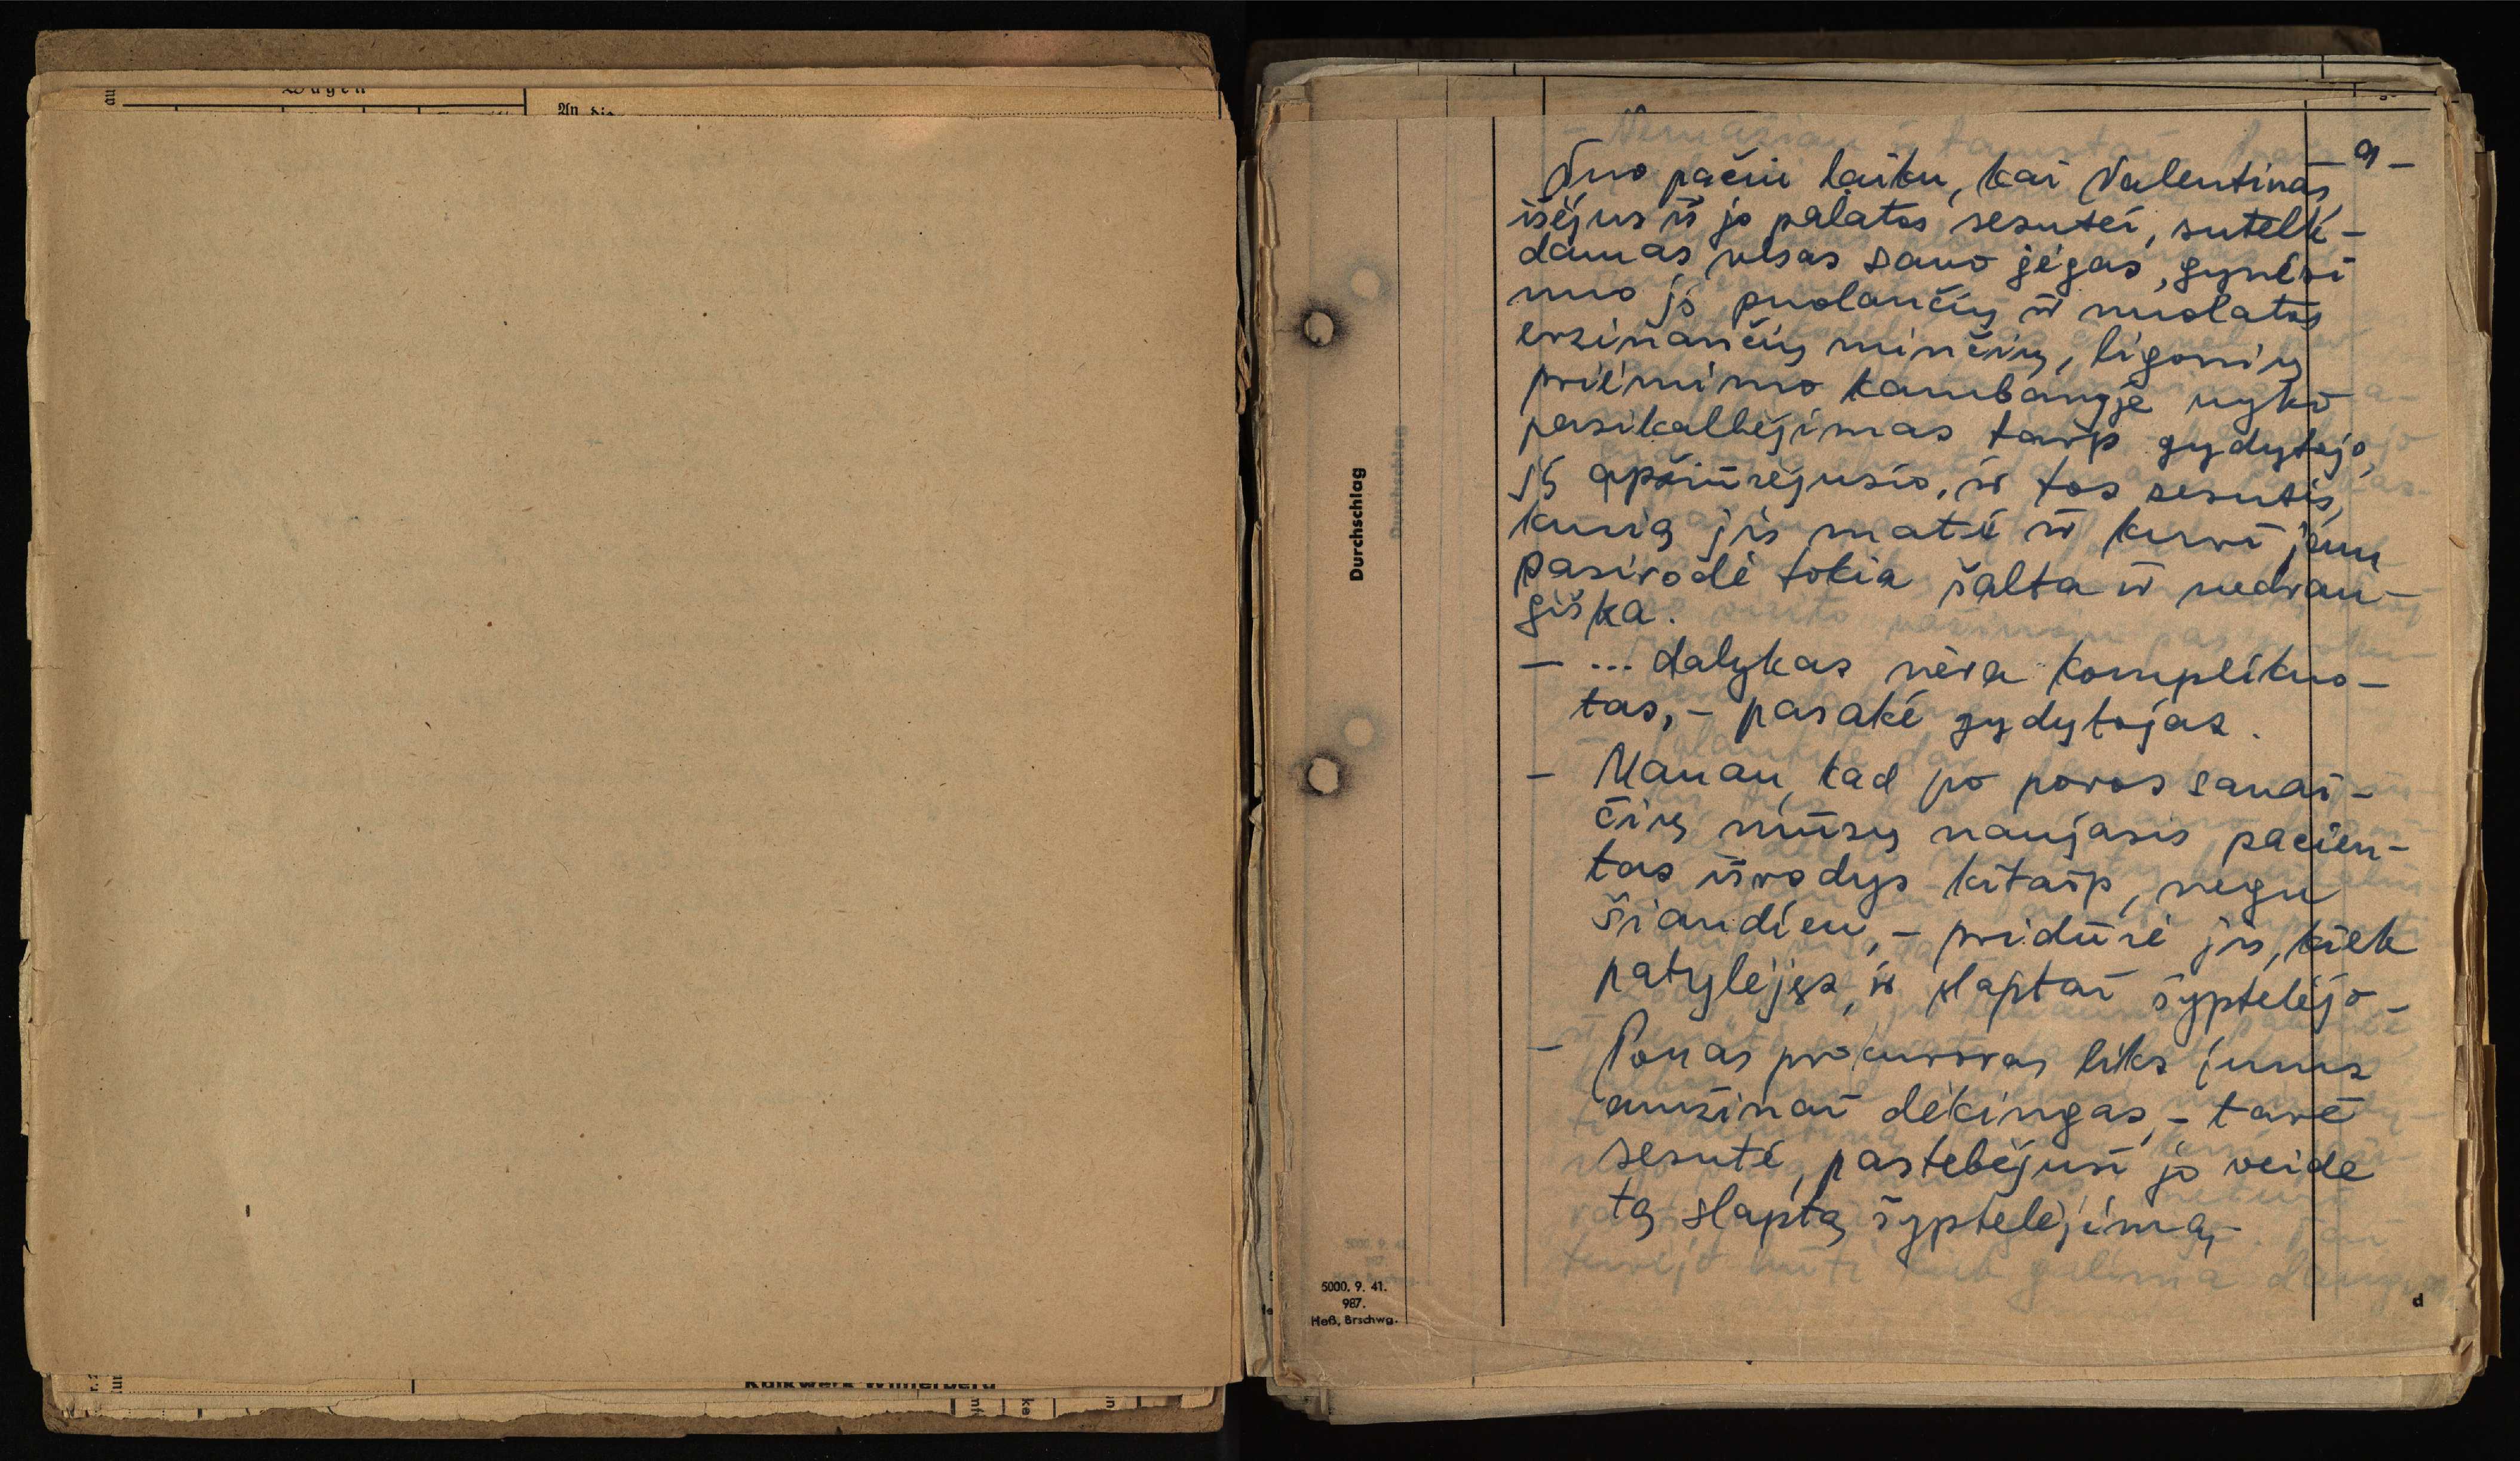 Wagen
An die
Kalkwerk Winterberg
- 9 -
Tuo pačiu laiku, kai Valentinas,
išėjus iš jo palatos sesutei, sutelk-
damas visas savo jėgas, gynėsi
nuo jo puolančių ir nuolatos
erzinančių minčių, ligonių
priėmimo kambaryje vyko
pasikalbėjimas tarp gydytojo,
jį apžiūrėjusio, ir tos sesutės,
kurią jis matė ir kuri jam
pasirodė tokia šalta ir nedrau-
giška.
- ... dalykas nėra komplikuo-
tas, - pasakė gydytojas.
- Manau, kad po poros savai-
čių mūsų naujasis pacien-
tas išrodys kitaip, negu
šiandien, - pridūrė jis, kiek
patylėjęs, ir slaptai šyptelėjo -
- Ponas prokuroras liks jums
amžinai dėkingas, - tarė
sesutė, pastebėjusi jo veide
tą slaptą šyptelėjimą, -
Durchschlag
5000. 9. 41.
987.
Heß, Brschwg.
d